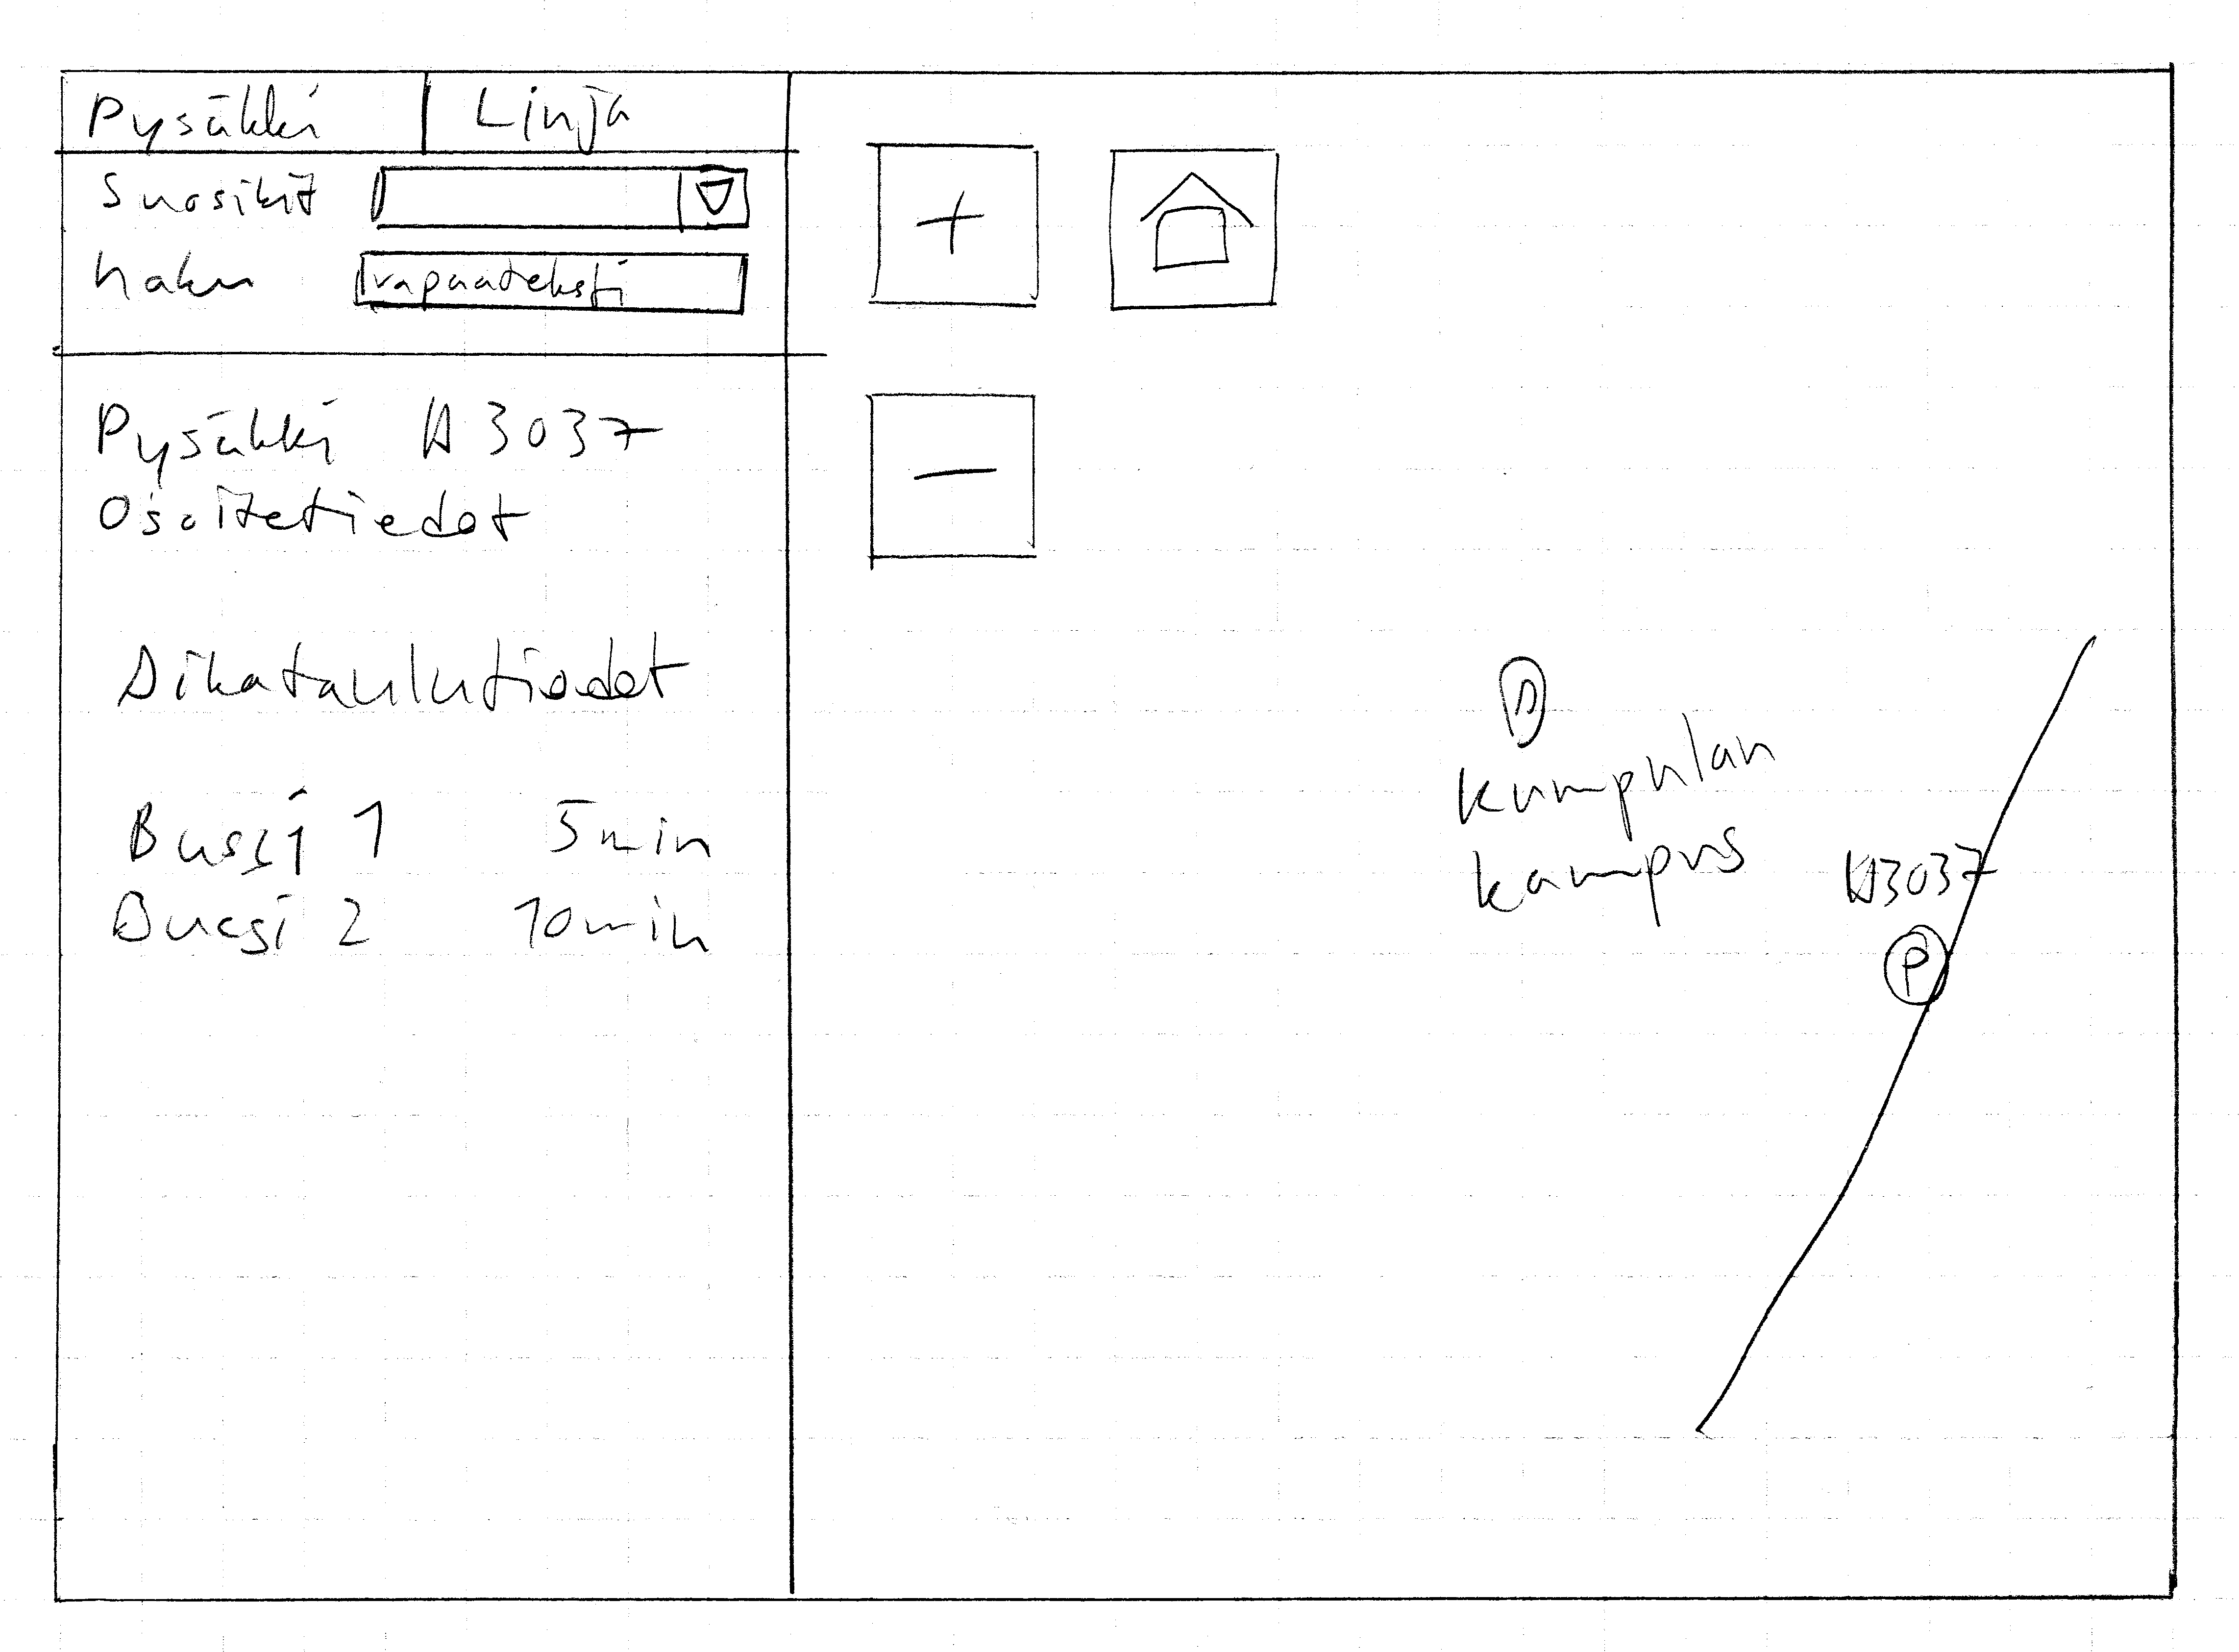 Pysäkki Linja
Suosikit
haku vapaateksti
+
Pysäkki H3037
Osoitetiedot
-
Aikataulutiedot
Bussi 1 5min
Bussi 2 10min
Kumpulan
kampus
H3037
P